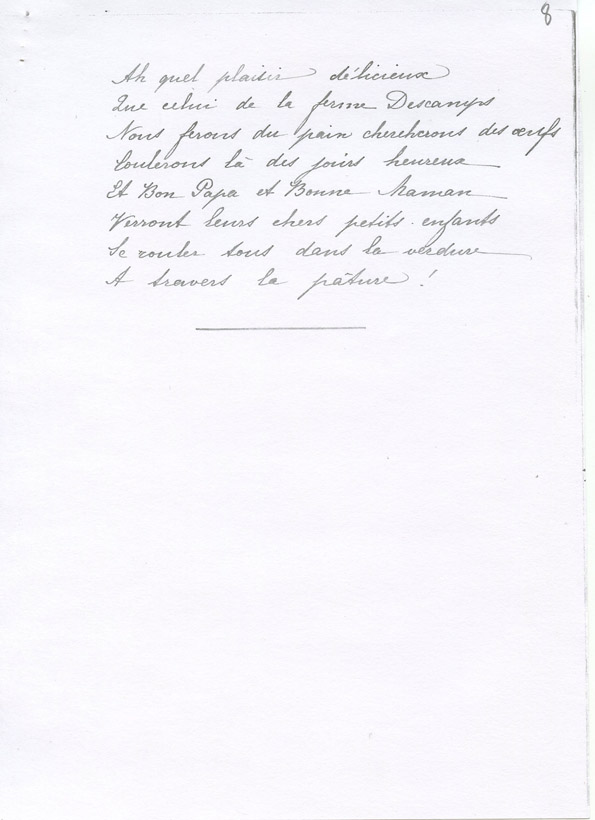 8
Ah quel plaisir délicieux
Que celui de la ferme Descamps
Nous ferons du pain chercherons des œufs
Coulerons là des jours heureux
Et Bon Papa et Bonne Maman
Verront leurs chers petits-enfants
Se rouler tous dans la verdure
A travers la pâture !